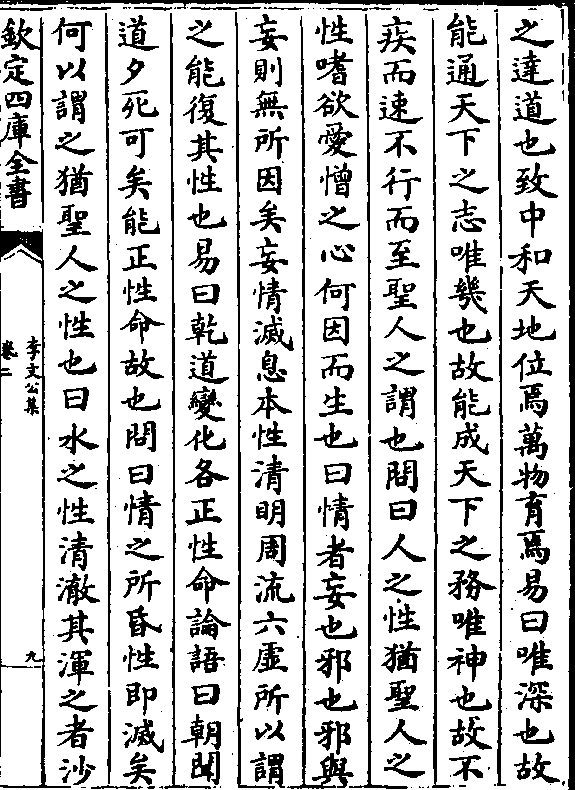 之達道也致中和天地位焉萬物育焉易曰唯深也故
能通天下之志唯幾也故能成天下之務唯神也故不
疾而速不行而至聖人之謂也問曰人之性猶聖人之
性嗜欲愛憎之心何因而生也曰情者妄也邪也邪與
妄則無所因矣妄情滅息本性清明周流六虛所以謂
之能復其性也易曰乾道變化各正性命論語曰朝聞
道夕死可矣能正性命故也問曰情之所昏性即滅矣
何以謂之猶聖人之性也曰水之性清澈其渾之者沙
欽定四庫全書
李文公集
卷二
九